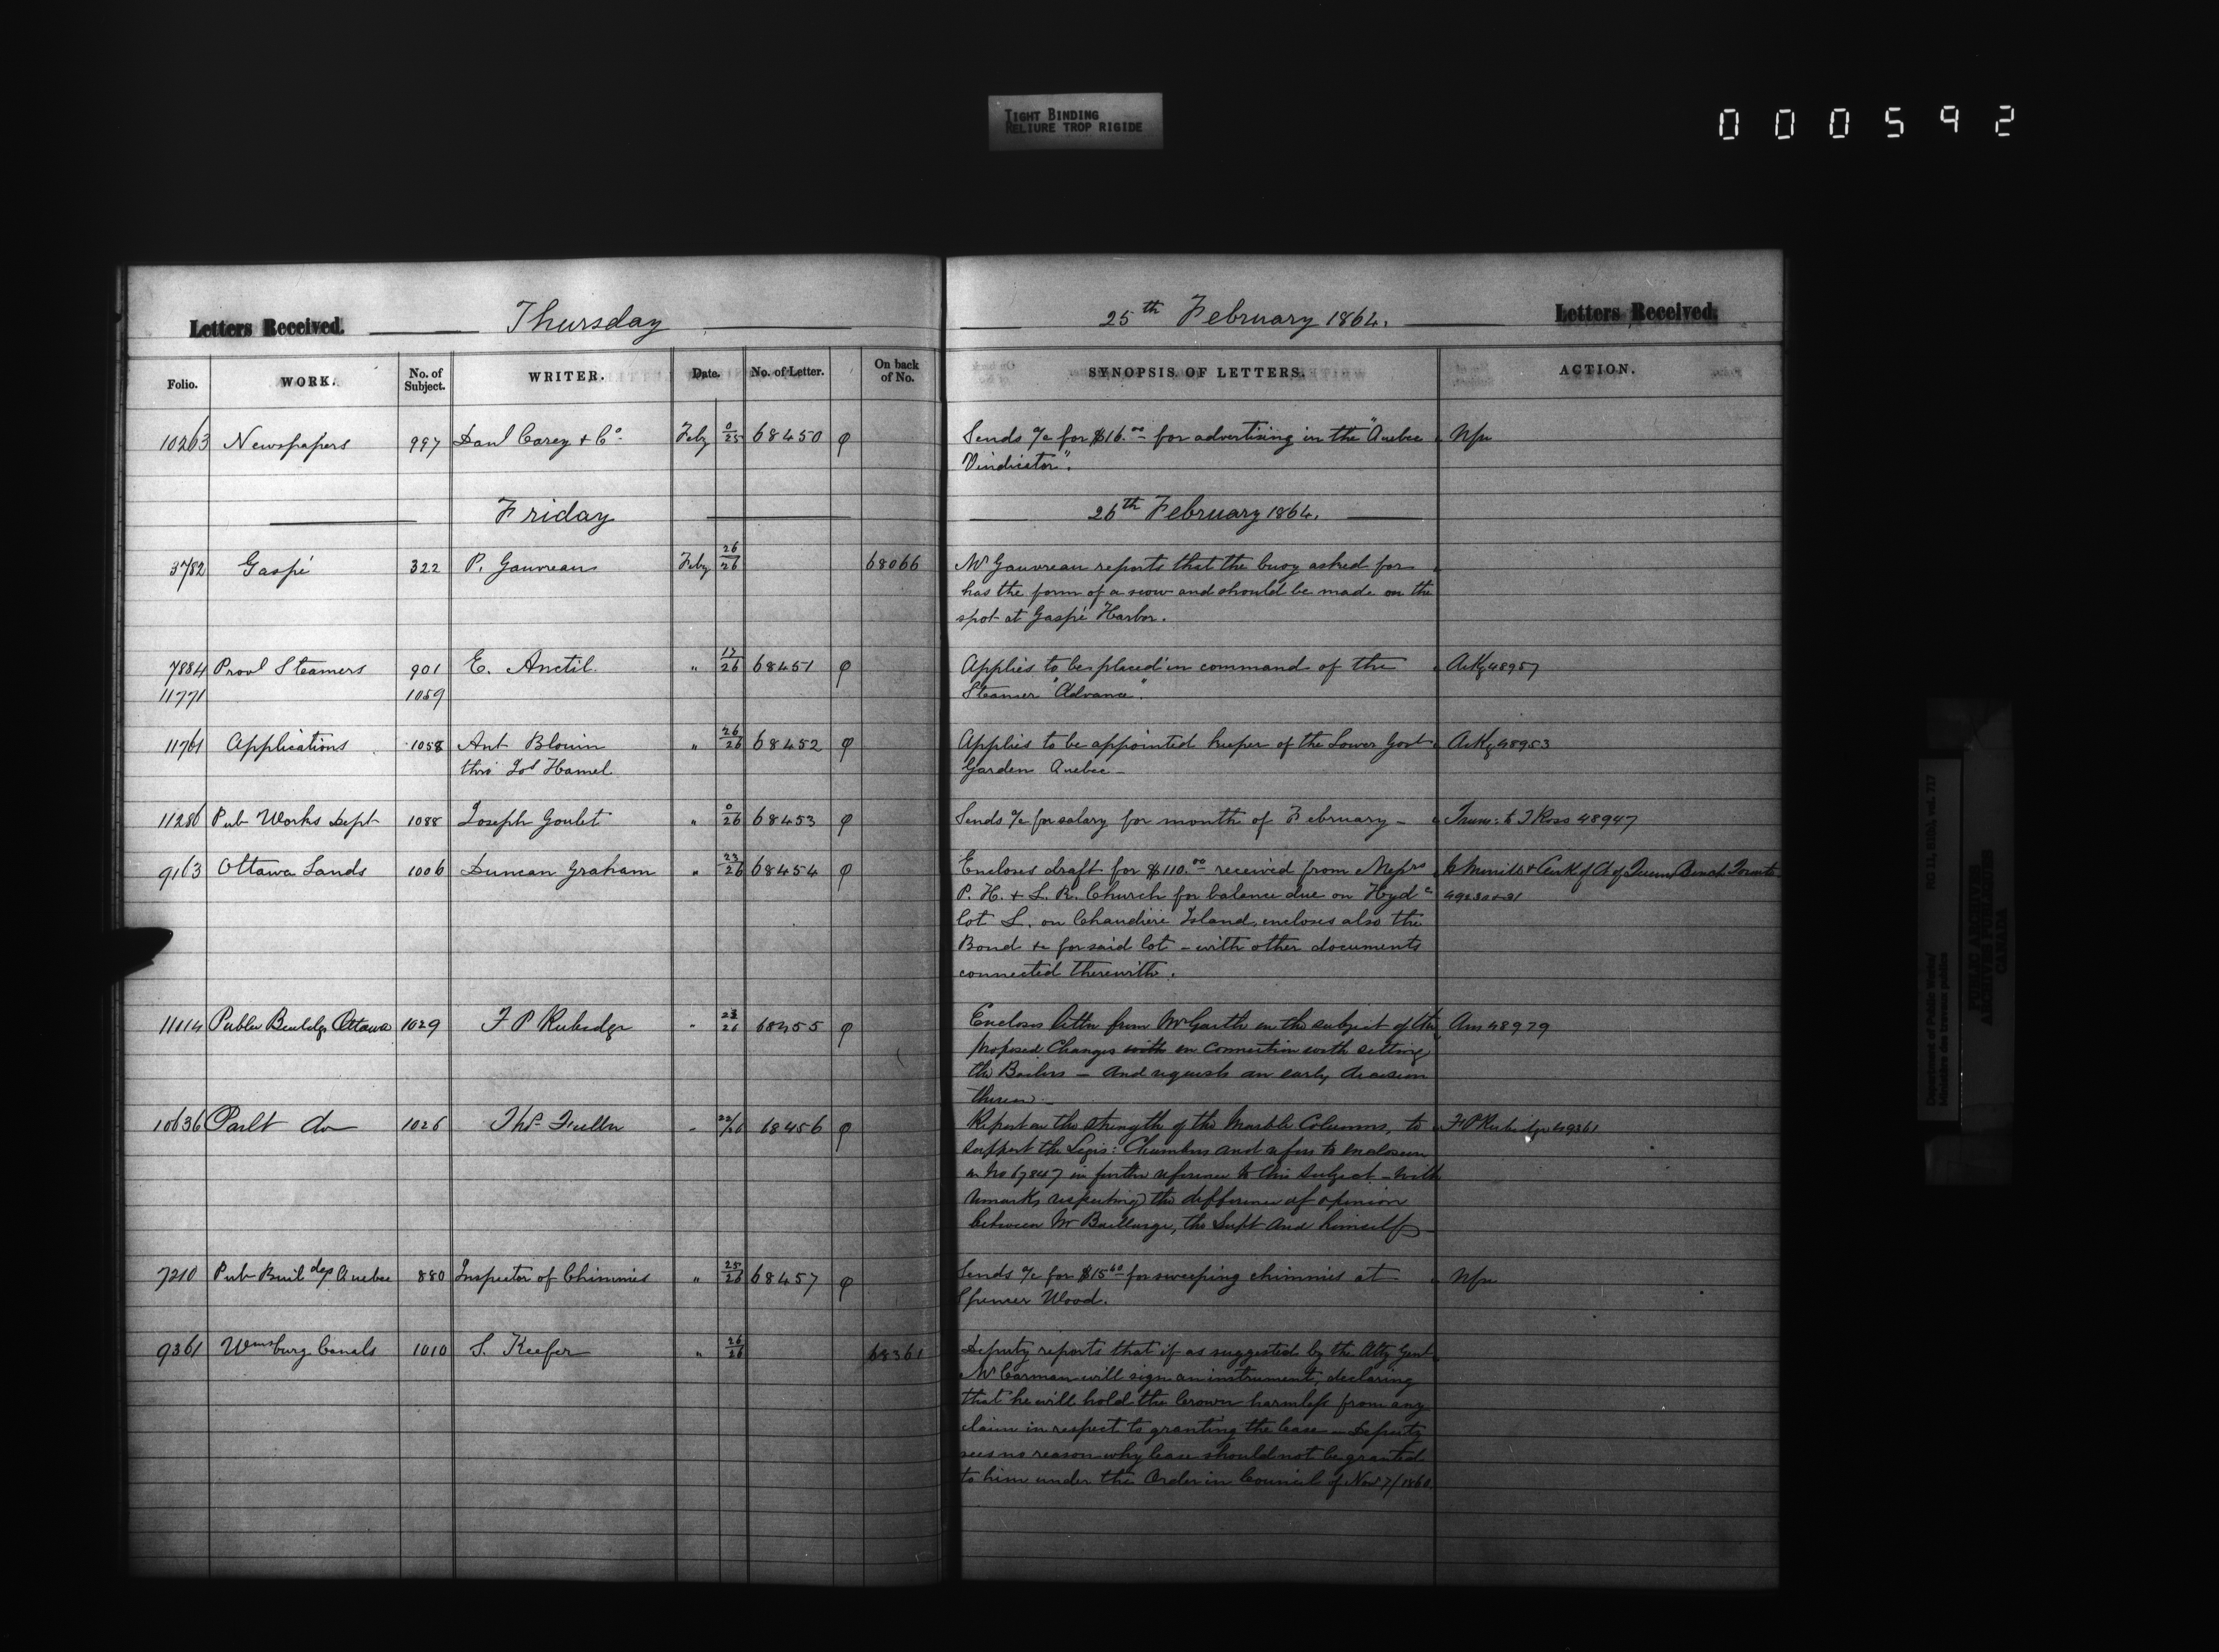 TIGHT BINDING
RELIURE TROP RIGIDE
000592
Letters Received. Thursday 25th February 1864. Letters Received.
Folio. WORK. No. of Subject. WRITER. Date. No. of Letter. On back of No. SYNOPSIS OF LETTERS. ACTION.
10263 Newspapers 997 Danl Carey + Co. Feby 0/25 68450 φ Sends a/c for $16.00 for advertising in the "Quebec Nfu
Vindicator".
Friday 26th February 1864.
3782 Gaspé 322 P. Gauvreau Feby 26/26 68066 Mr Gauvreau reports that the buoy asked for
has the form of a scow and should be made on the
spot at Gaspé Harbor.
7884 Provl Steamers 901 E. Anctil " 17/26 68451 φ Applies to be placed in command of the AcKg 48957
11771 1059 Steamer "Advance".
11761 Applications 1058 Ant Blouin " 26/26 68452 φ Applies to be appointed keeper of the Lower Govt AcKg 48953
thro' Jos Hamel Garden Quebec
11286 Pub Works Dept 1088 Joseph Goulet " 0/26 68453 φ Sends a/c for salary for month of February - Trans: to T Ross 48947
9163 Ottawa Lands 1006 Duncan Graham " 23/26 68454 φ Encloses draft for $110.00 received from Messrs
P. H. + L. R. Church for balance due on Hydc
lot L. on Chaudiere Island, encloses also the
Bond &c for said lot - with other documents
connected therewith.
11114 Public Buildgs Ottawa 1029 F P Rubidge " 23/26 68455 φ Encloses letter from Mr Garth on the subject of the Ans 48979
proposed Changes with in Connection with setting
the Boilers - and requests an early decision
thereon.
10636 Parlt do 1026 Thos Fuller " 22/26 68456 φ Report on the strength of the Marble Columns, to F P Rubidge 49361
support the Legis: Chambers and refers to enclosure
in No 67847 in further reference to this subject - with
remarks respecting the difference of opinion
between Mr Baillairge, the Supt and himself
7210 Pub Buildgs Quebec 880 Inspector of Chimnies " 25/26 68457 φ Sends a/c for $15.60 for sweeping chimnies at Nfu
Spencer Wood.
9361 Wmsburg Canals 1010 S. Keefer " 26/26 68361 Deputy reports that if as suggested by the Atty Genl
Mr Carman will sign an instrument, declaring
that he will hold the Crown harmless from any
claim in respect to granting the lease - Deputy
sees no reason why lease should not be granted
to him under the Order in Council of Nov 7/1860.
Department of Public Works/ RG 11, B1(b), vol. 717
Ministère des travaux publics
PUBLIC ARCHIVES
ARCHIVES PUBLIQUES
CANADA